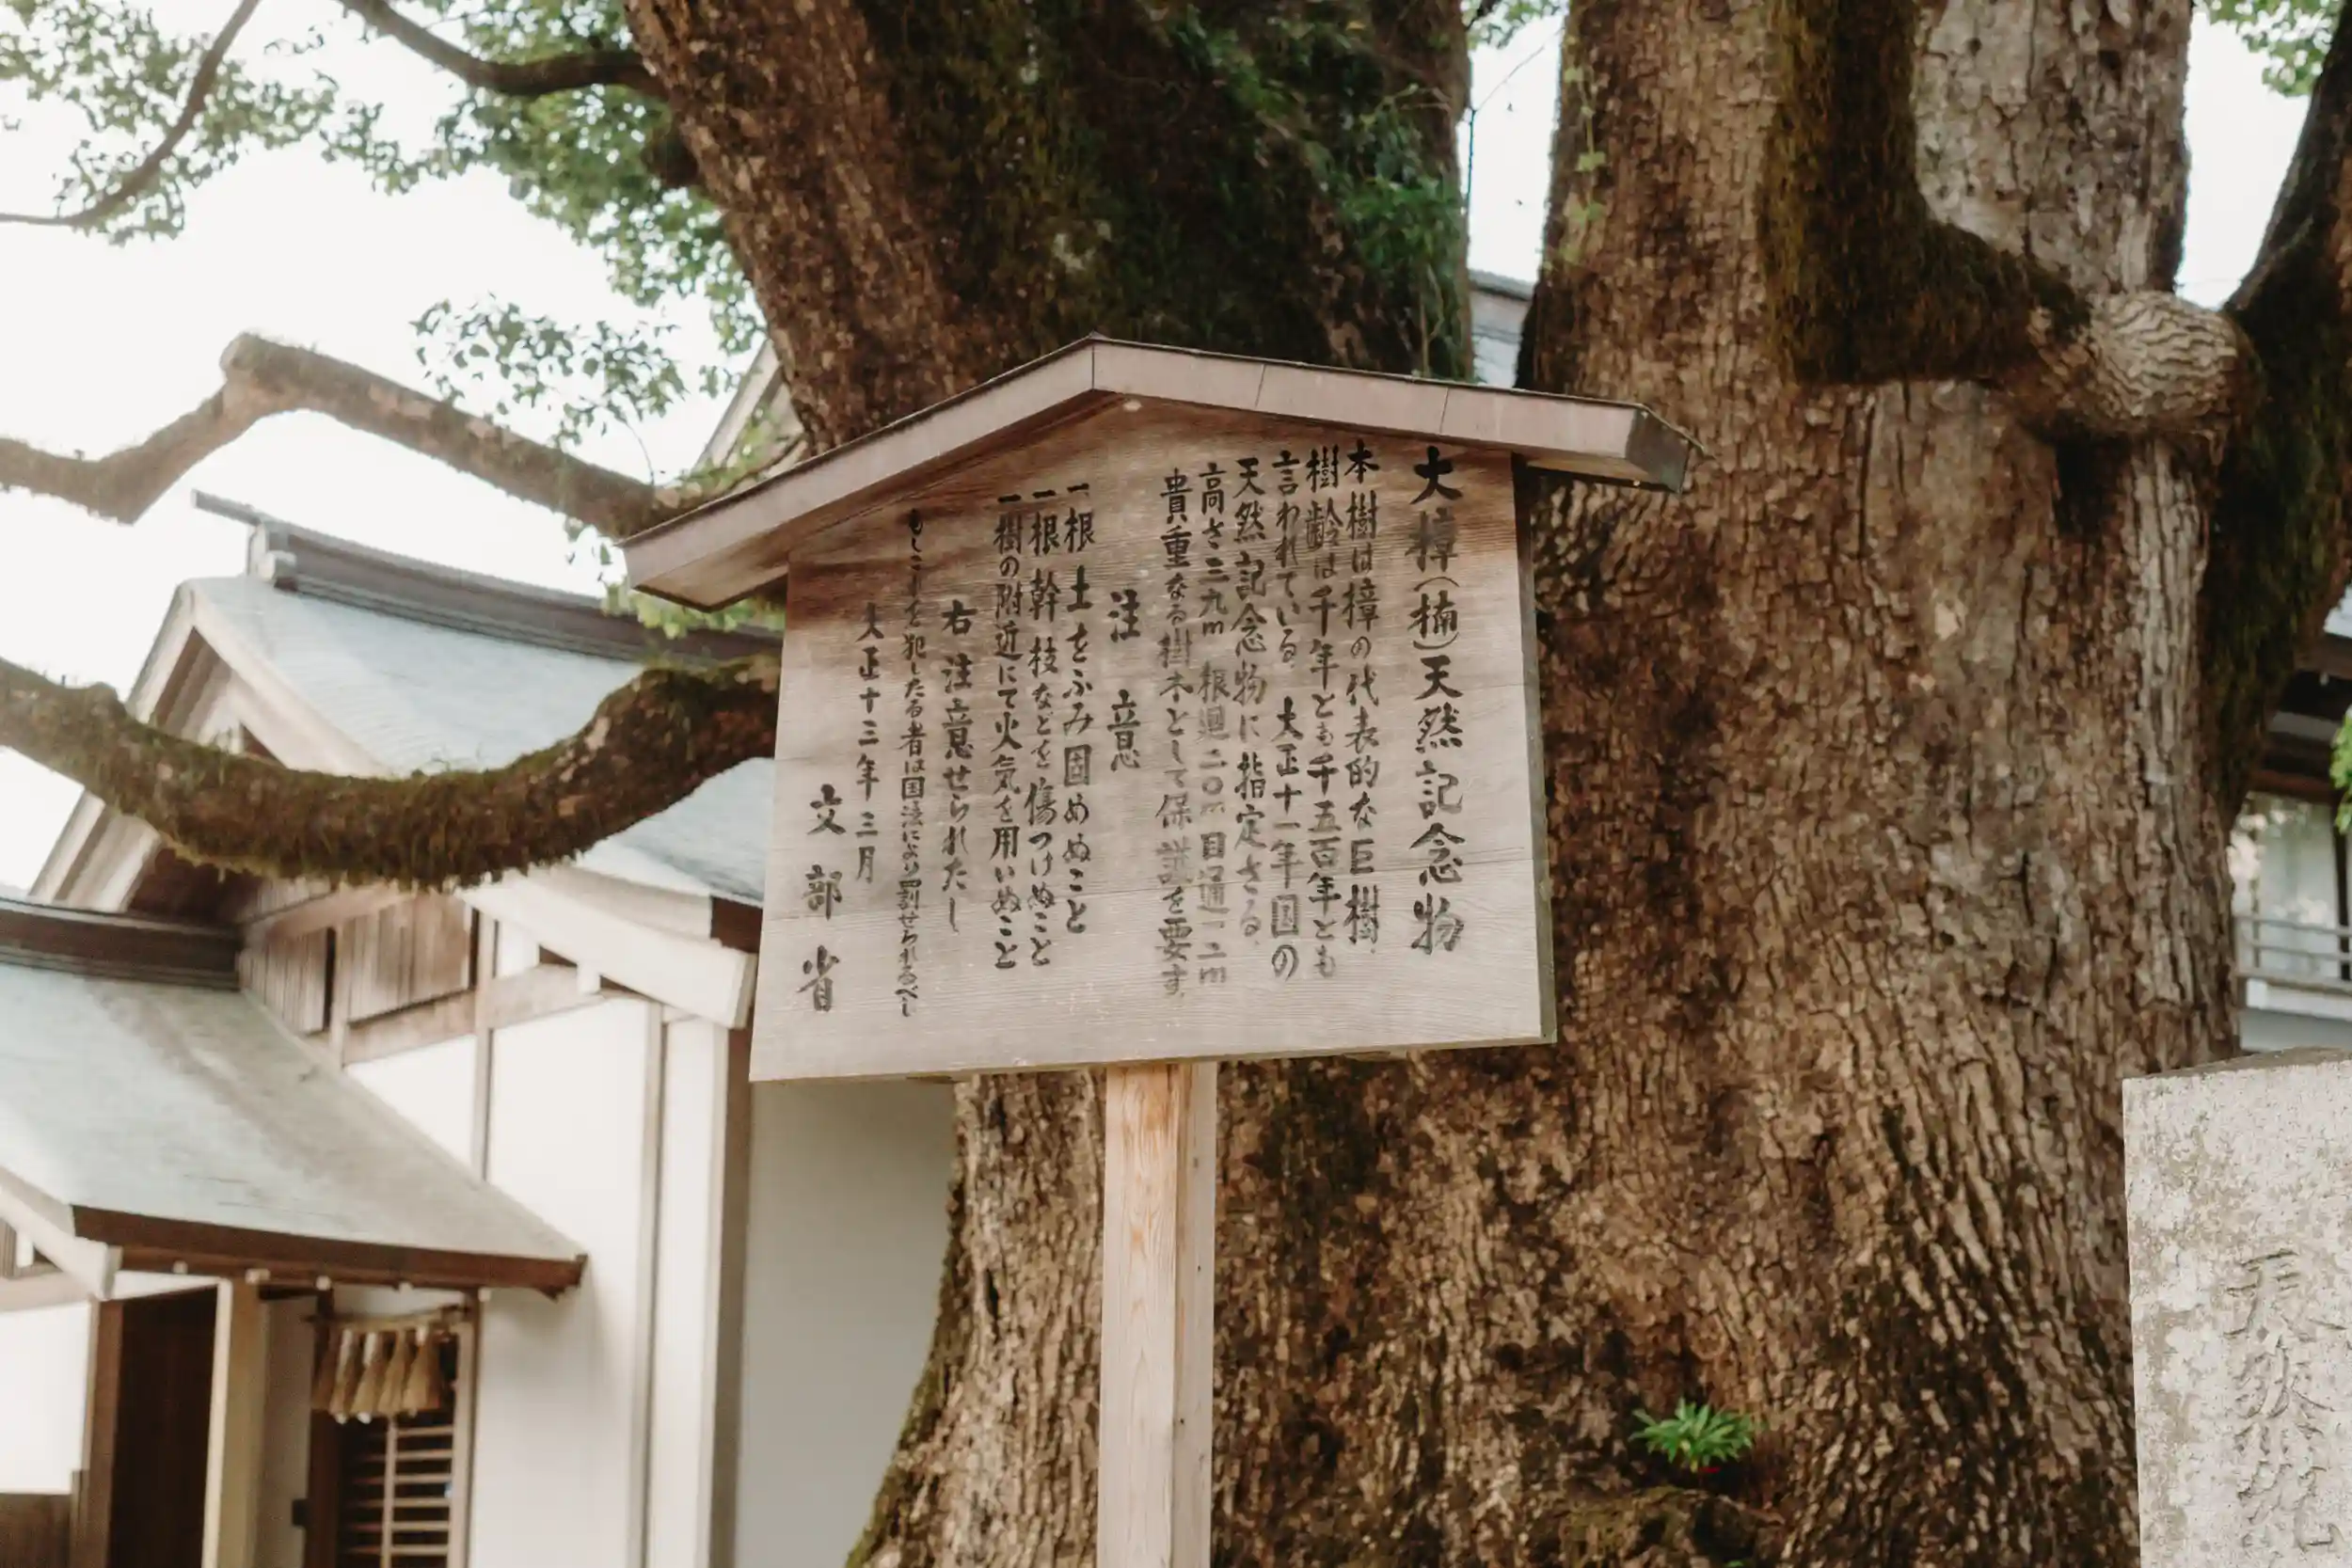 大樟(楠)天然記念物
本樹は樟の代表的な巨樹、
樹齢は千年とも千五百年とも
言われている。大正十一年国の
天然記念物に指定さる。
高さ三九m 根廻二〇m 目通一二m
貴重なる樹木として保護を要す。
注意
一根土をふみ固めぬこと
一根幹枝などを傷つけぬこと
一樹の附近にて火気を用いぬこと
右注意せられたし
もしこれを犯したる者は国法により罰せられるべし
大正十三年三月
文部省
天然紀